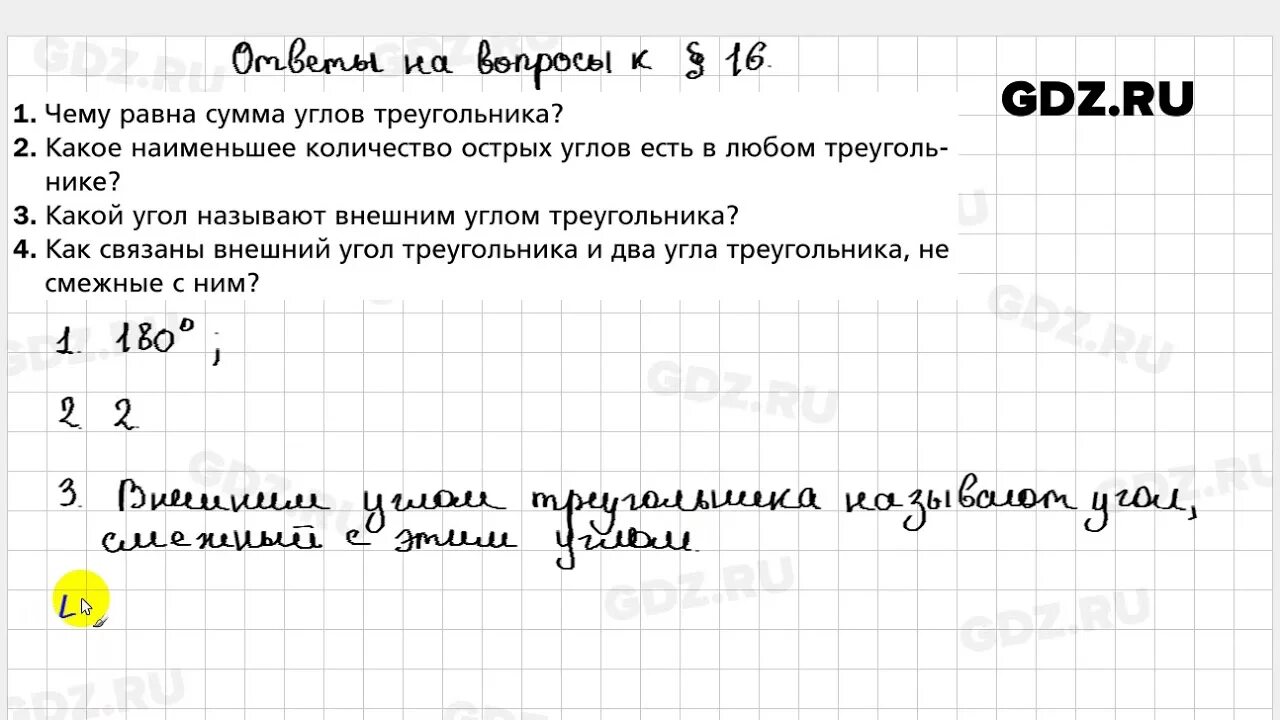 Ответы на вопросы к § 16.
GDZ.RU
1. Чему равна сумма углов треугольника?
2. Какое наименьшее количество острых углов есть в любом треуголь-
нике?
3. Какой угол называют внешним углом треугольника?
4. Как связаны внешний угол треугольника и два угла треугольника, не
смежные с ним?
1. 180°;
2. 2
3. Внешним углом треугольника называют угол,
смежный с этим углом.
GDZ.RU
GDZ.RU
GDZ.RU
GDZ.RU
GDZ.RU
GDZ.RU
GDZ.RU
GDZ.RU